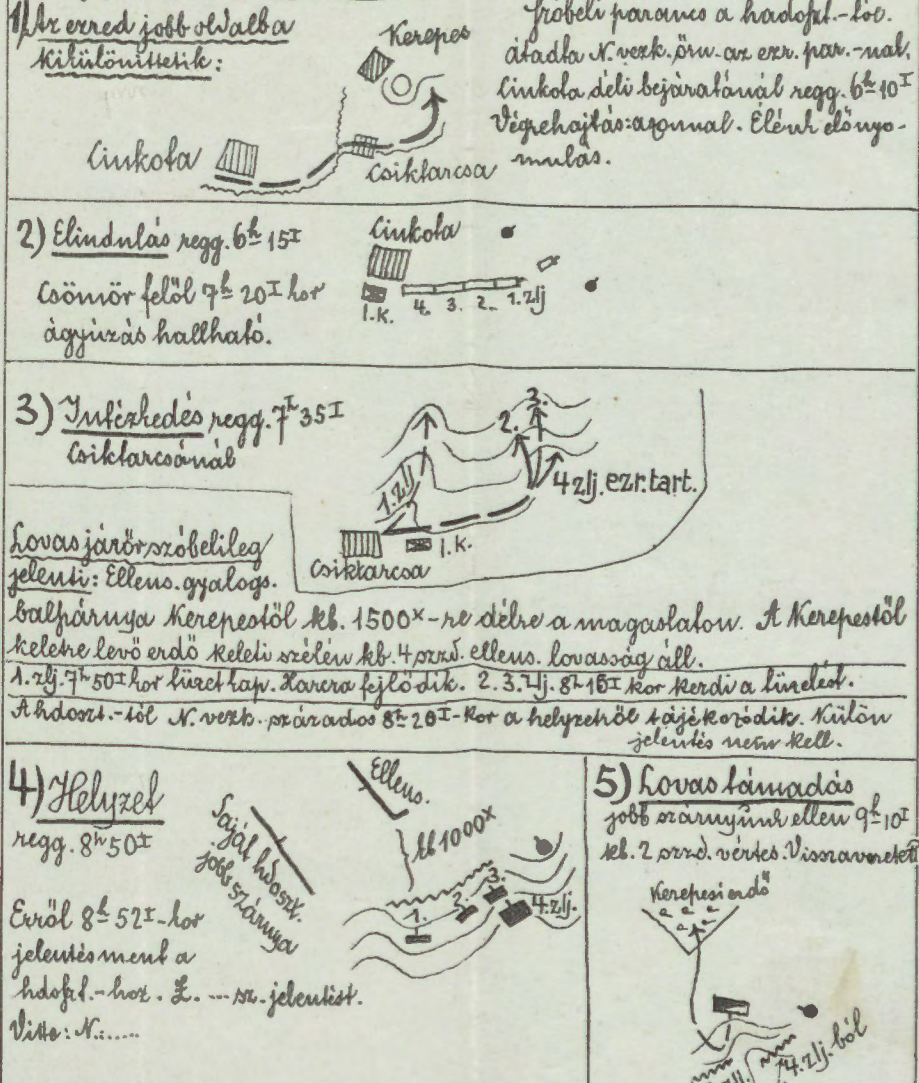 1) Az ezred jobb oldalba
kikülönittetik:
Kerepes
Cinkota
Csiktarcsa
szóbeli parancs a hadoszt.-tól.
átadta N. vezk. őrn. az ezr. par.-nak,
Cinkota déli bejáratánál regg. 6h 10I
Végrehajtás: azonnal. Élénk előnyo-
mulás.
2) Elindulás regg. 6h 15I
Csömör felől 7h 20I kor
ágyúzás hallható.
Cinkota
I.K. 4. 3. 2. 1. zlj
3) Intézkedés regg. 7h 35I
Csiktarcsánál
3.
2.
1. zlj
4 zlj. ezr. tart.
I.K.
Csiktarcsa
Lovas járőr szóbelileg
jelenti: Ellens. gyalogs.
balszárnya Kerepestől kb. 1500x-re délre a magaslaton. A Kerepestől
keletre levő erdő keleti szélén kb. 4 szzd. ellens. lovasság áll.
1. zlj. 7h 50I kor tüzet kap. Harcra fejlődik. 2. 3. zlj. 8h 10I kor kezdi a tüzelést.
A hdoszt.-tól N. vezk. százados 8h 20I-kor a helyzetről tájékozódik. Külön
jelentés nem kell.
4) Helyzet
regg. 8h 50I
Erről 8h 52I-kor
jelentés ment a
hdoszt.-hoz. Z. ... sz. jelentést.
Vitte: N.:.....
Saját hdoszt.
jobb szárnya
Ellens.
kb 1000x
1. 2. 3. 4. zlj.
5) Lovas támadás
jobb szárnyunk ellen 9h 10I
kb. 2 szzd. vértes. Visszaveretett
Kerepesi erdő
4. zlj. ból